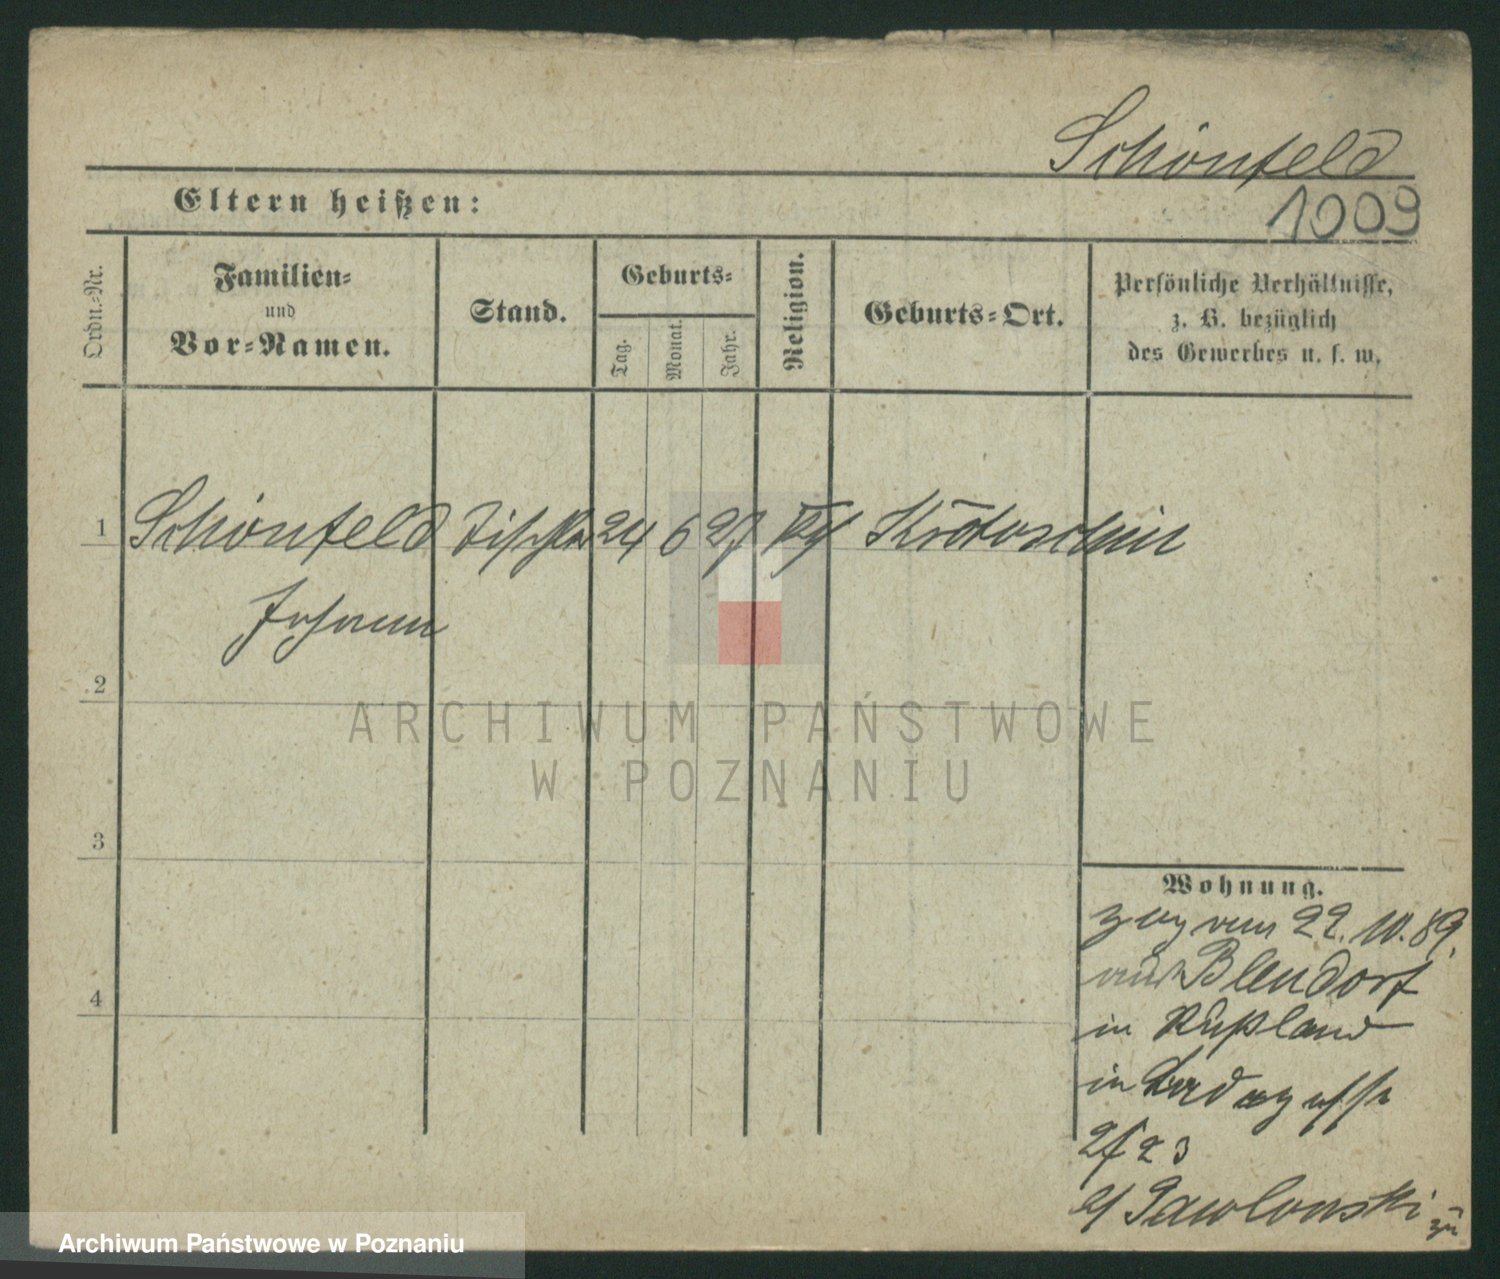 Schönfeld
1009
Eltern heißen:
Ordn.-Nr.
Familien-
und
Vor-Namen.
Stand.
Geburts-
Tag.
Monat.
Jahr.
Religion.
Geburts-Ort.
Persönliche Verhältnisse,
z. B. bezüglich
des Gewerbes u. s. w.
1 Schönfeld Tischler 24 6 27 Krotoschin
Johann
2
ARCHIWUM PAŃSTWOWE
W POZNANIU
3
Wohnung.
zog vom 22.10.89.
aus Blendorf
4
in Rußland
in
23
Pawlowski zu
Archiwum Państwowe w Poznaniu